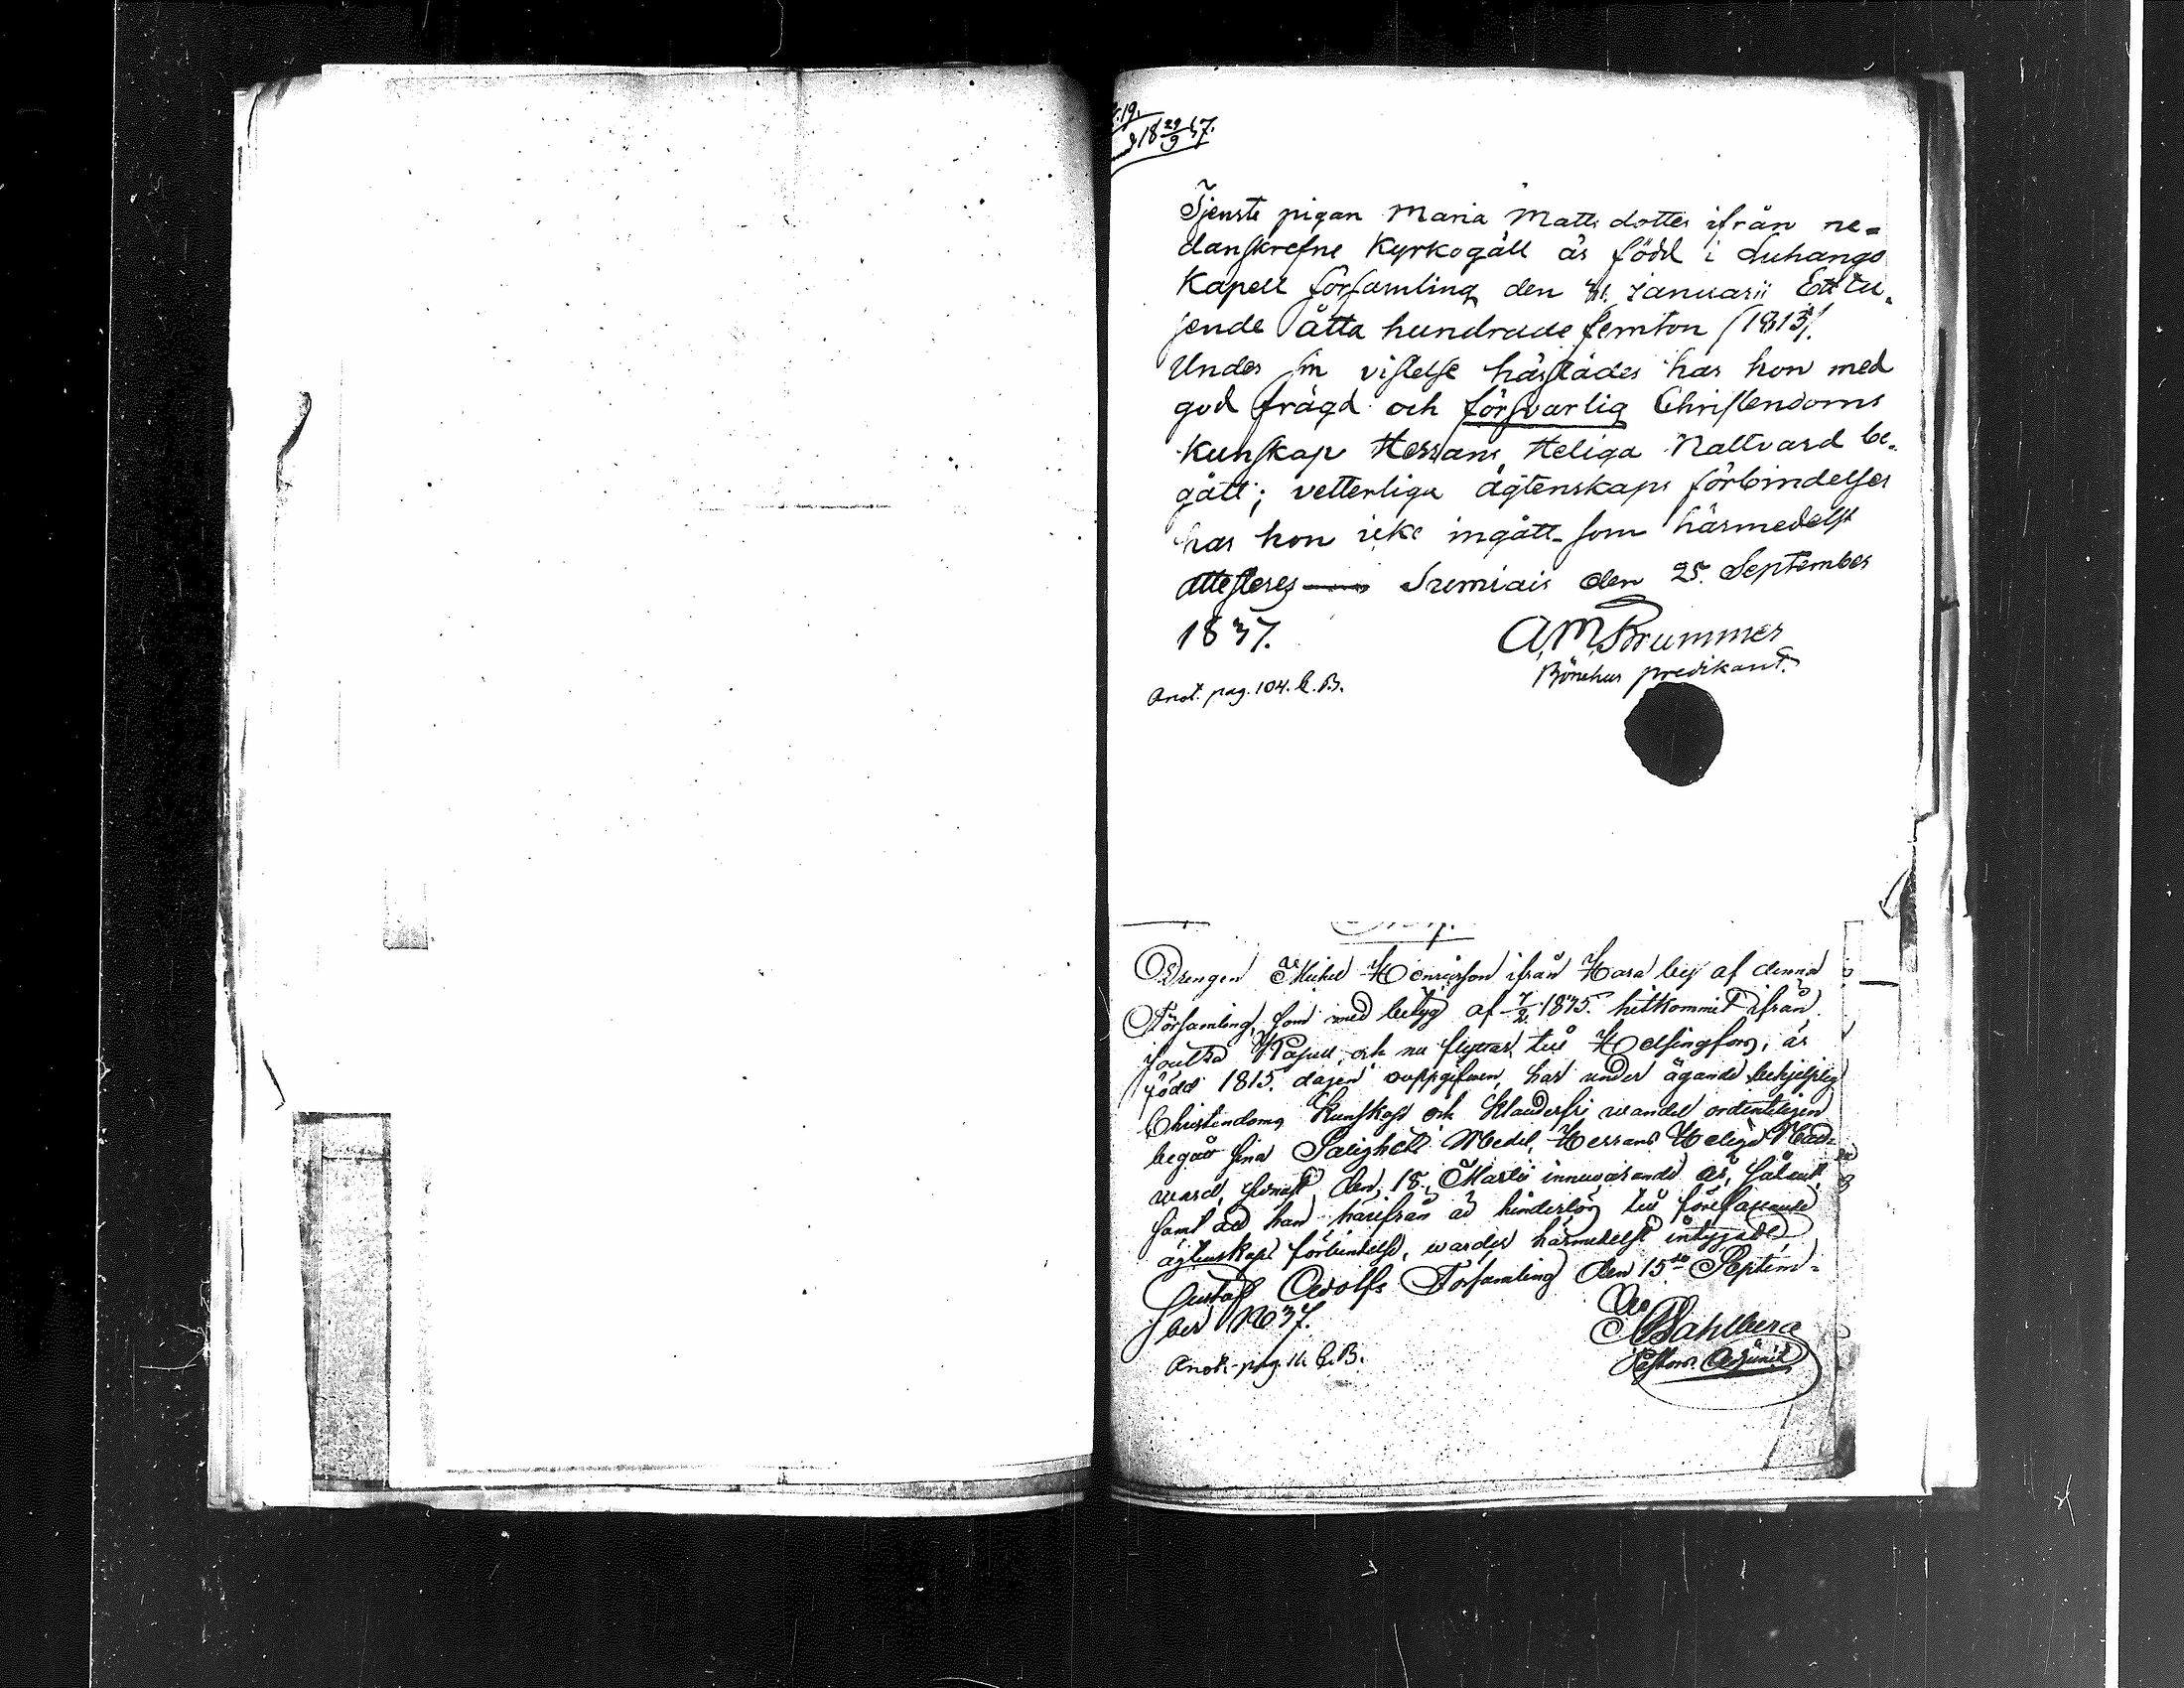 18 29/9 37.
Tjenste pigan Maria Matts dotter ifrån ne=
danskrefne Kyrkogäll är född i Luhango
Kapell församling den 31. Januarii Ett tu,
sende åtta hundrade femton (1815).
Under sin vistelse härstädes har hon med
god frägd och försvarlig Christendoms
Kunskap Herrans Heliga Nattvard be-
gått; vetterliga ägtenskaps förbindelser
har hon icke ingått som härmedelst
attesteres den 25. September
1837. A.M. Brummer
Bönehus predikant.
Anot. pag. 104. C.B.
Drengen Michel Henricsson ifrån Hara by af denna
Församling, som med betyg af 7/2 1835. hitkommit ifrån
Joutsa Kapell, och nu flyttar till Helsingfors, är
född 1815. dagen ouppgifwen, har under ägande behjelplig
Christendoms Kunskap och klanderfri wandel ordenteligen
begått sina Salighets Medel, Herrans Heliga Natt=
ward, sednast den 18. Martii innewarande år,
samt att han härifrån är hinderlös till föresattande
ägtenskaps förbindelse, warder härmedelst intygadt.
Gustaf Adolfs Församling den 15de Septem=
ber 1837.
Dahlberg
Pastors Adjunct
Anot. pag. C.B.